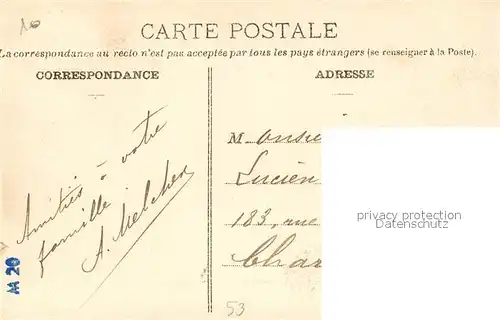 10
CARTE POSTALE
La correspondance au recto n'est pas acceptée par tous les pays étrangers (se renseigner à la Poste).
CORRESPONDANCE
ADRESSE
Amitiés à votre
famille
A. Melcher
M 20
Monsieu
Lucien
183, rue
Char
53
privacy protection
Datenschutz